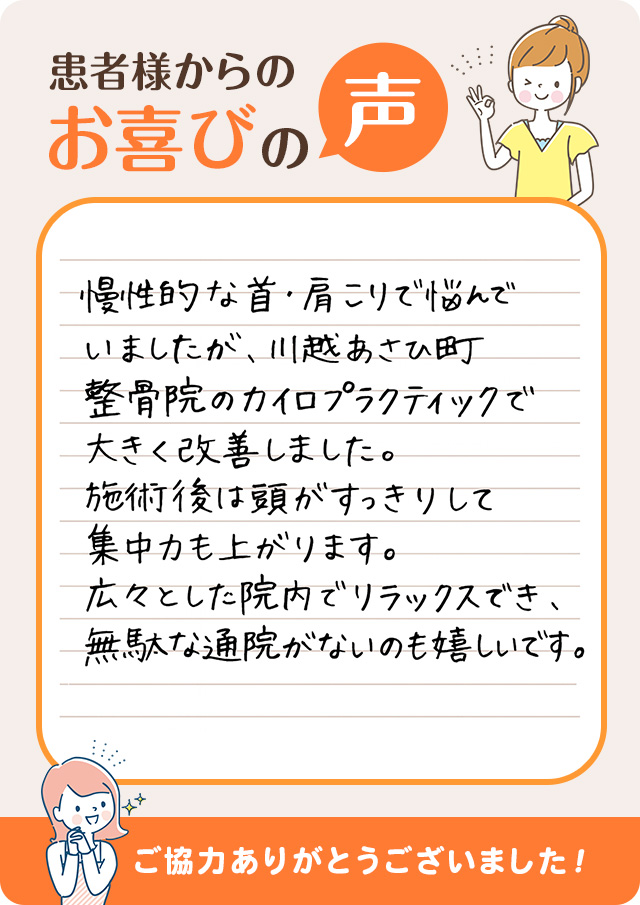 患者様からの
お喜びの声
慢性的な首・肩こりで悩んで
いましたが、川越あさひ町
整骨院のカイロプラクティックで
大きく改善しました。
施術後は頭がすっきりして
集中力も上がります。
広々とした院内でリラックスでき、
無駄な通院がないのも嬉しいです。
ご協力ありがとうございました!